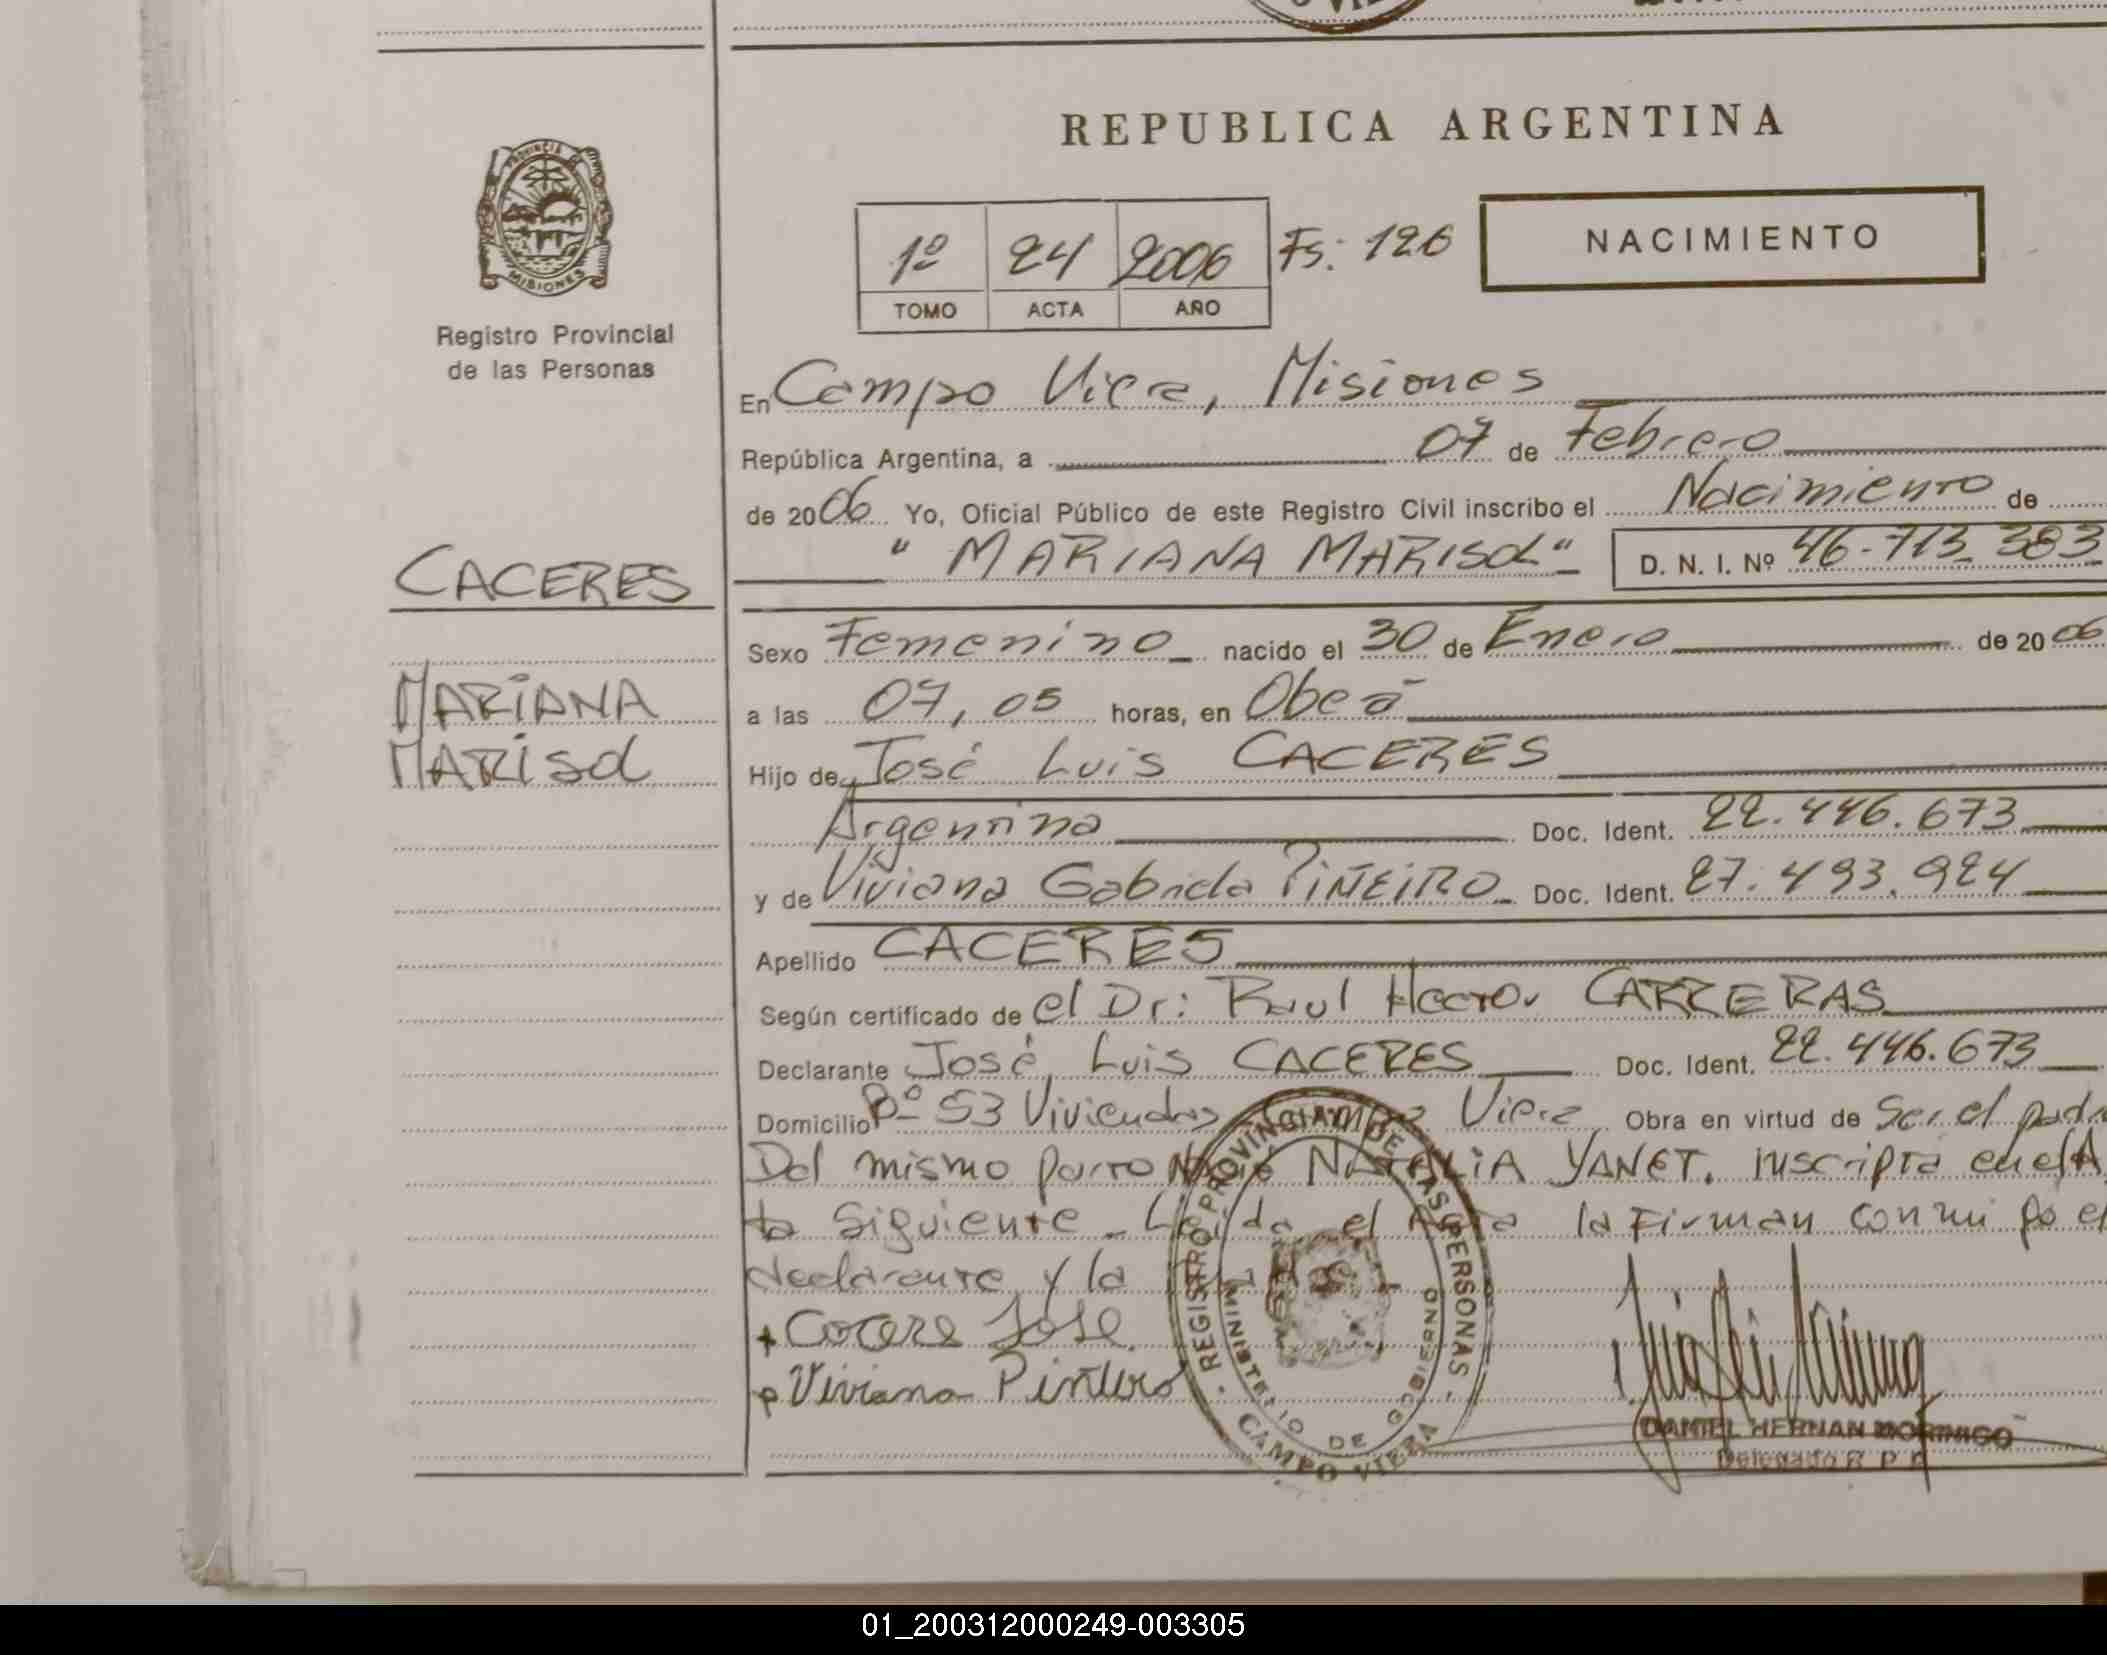 REPUBLICA ARGENTINA
PROVINCIA DE
MISIONES
Registro Provincial
de las Personas
1º 24 2006 Fs: 126
TOMO ACTA AÑO
NACIMIENTO
En Campo Viera, Misiones
República Argentina, a 07 de Febrero
de 2006 Yo, Oficial Público de este Registro Civil inscribo el Nacimiento de
"MARIANA MARISOL" D. N. I. Nº 46.713.383
CACERES
MARIANA
MARISOL
Sexo Femenino nacido el 30 de Enero de 2006
a las 07,05 horas, en Oberá
Hijo de José Luis CACERES
Argentino Doc. Ident. 22.446.673
y de Viviana Gabriela PIÑEIRO Doc. Ident. 27.493.924
Apellido CACERES
Según certificado de el Dr: Raul Hector CARRERAS
Declarante José Luis CACERES Doc. Ident. 22.446.673
Domicilio Bº 53 Viviendas Campo Viera Obra en virtud de Ser el padre
Del mismo parto Nació NATALIA YANET. inscripta en el A
ta Siguiente. Leída el Acta la Firman conmigo el
declarante y la
Cacere José
Viviana Piñeiro
REGISTRO PROVINCIAL DE LAS PERSONAS
MINISTERIO DE GOBIERNO
CAMPO VIERA
DANIEL HERNAN MORINIGO
Delegado R. P. P.
01_200312000249-003305